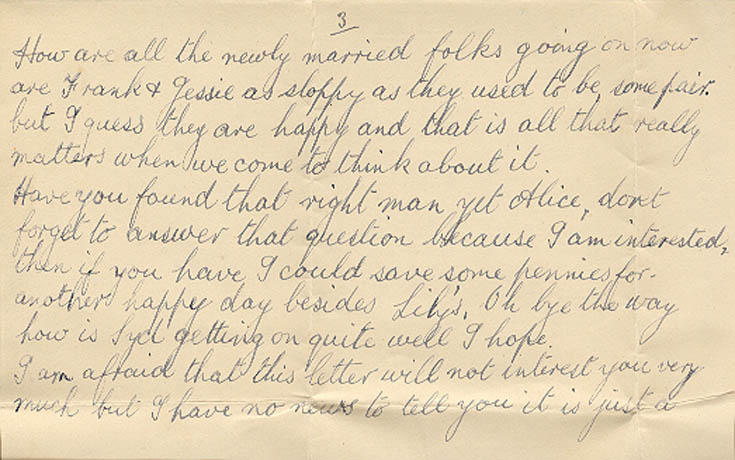 3
How are all the newly married folks going on now
are Frank & Jessie as sloppy as they used to be, some pair.
but I guess they are happy and that is all that really
matters when we come to think about it.
Have you found that right man yet Alice, don't
forget to answer that question because I am interested,
then if you have I could save some pennies for
another happy day besides Lily's. Oh bye the way
how is Syd getting on quite well I hope.
I am afraid that this letter will not interest you very
much but I have no news to tell you it is just a